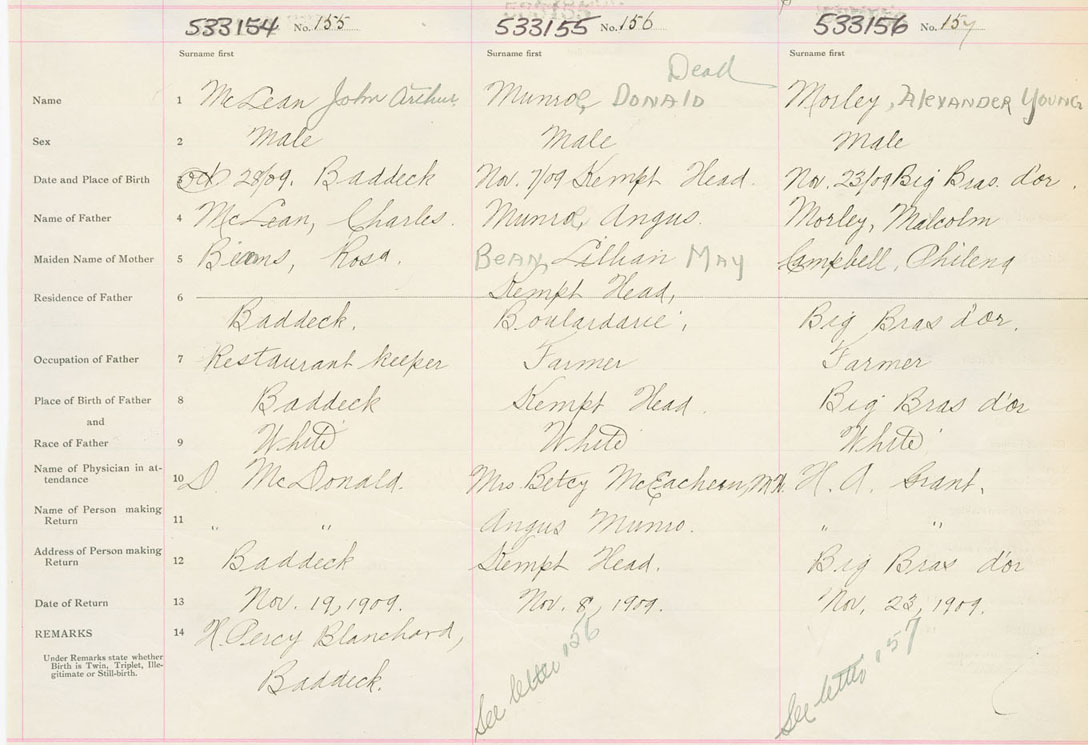 533154 No. 155 533155 No. 156 533156 No. 157
Surname first Surname first Surname first
Dead
Name 1 McLean John Arthur Munroe, DONALD Morley, ALEXANDER YOUNG
Sex 2 Male Male Male
Date and Place of Birth 3 Oct 28/09. Baddeck Nov. 7/09 Kempt Head. Nov. 23/09 Big Bras. d'or.
Name of Father 4 McLean, Charles. Munroe, Angus. Morley, Malcolm
Maiden Name of Mother 5 Rosa. BEAN, Lillian MAY Campbell, Philena
Kempt Head,
Residence of Father 6
Baddeck. Boulardarie, Big Bras d'or.
Occupation of Father 7 Restaurant keeper Farmer Farmer
Place of Birth of Father 8 Baddeck Kempt Head. Big Bras d'or
and
Race of Father 9 White White White
Name of Physician in at-
tendance 10 D. McDonald. Mrs Betcy McEachern, H. A. Grant.
Name of Person making
Return 11 " " Angus Munro. " "
Address of Person making
Return 12 Baddeck Kempt Head. Big Bras d'or
Date of Return 13 Nov. 19, 1909. Nov. 8, 1909. Nov. 23, 1909.
REMARKS 14 H. Percy Blanchard,
Under Remarks state whether
Birth is Twin, Triplet, Ille-
gitimate or Still-birth.
Baddeck.
See letter 156 See letter 157